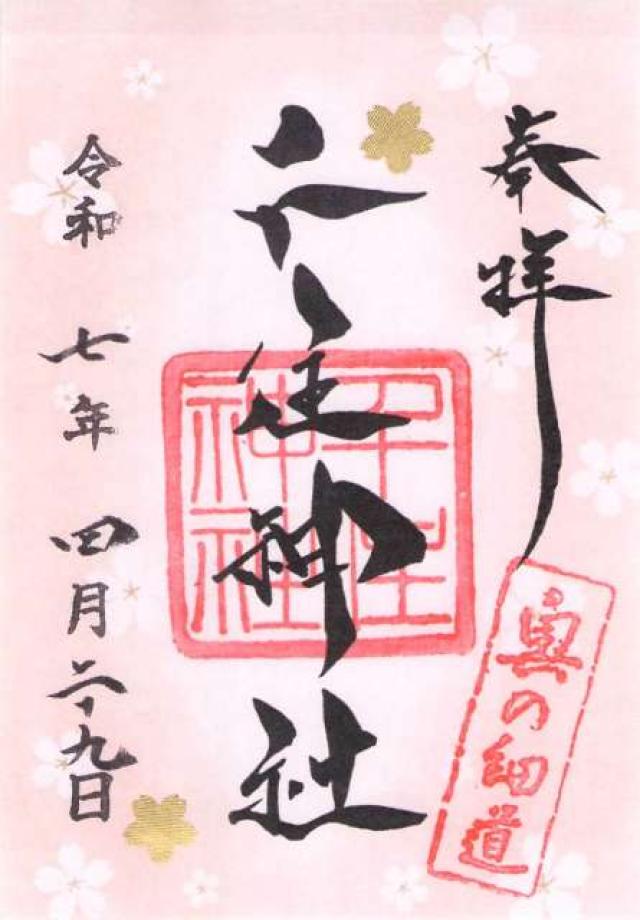 奉拝
千住神社
千住神社
奥の細道
令和 七年 四月二十九日